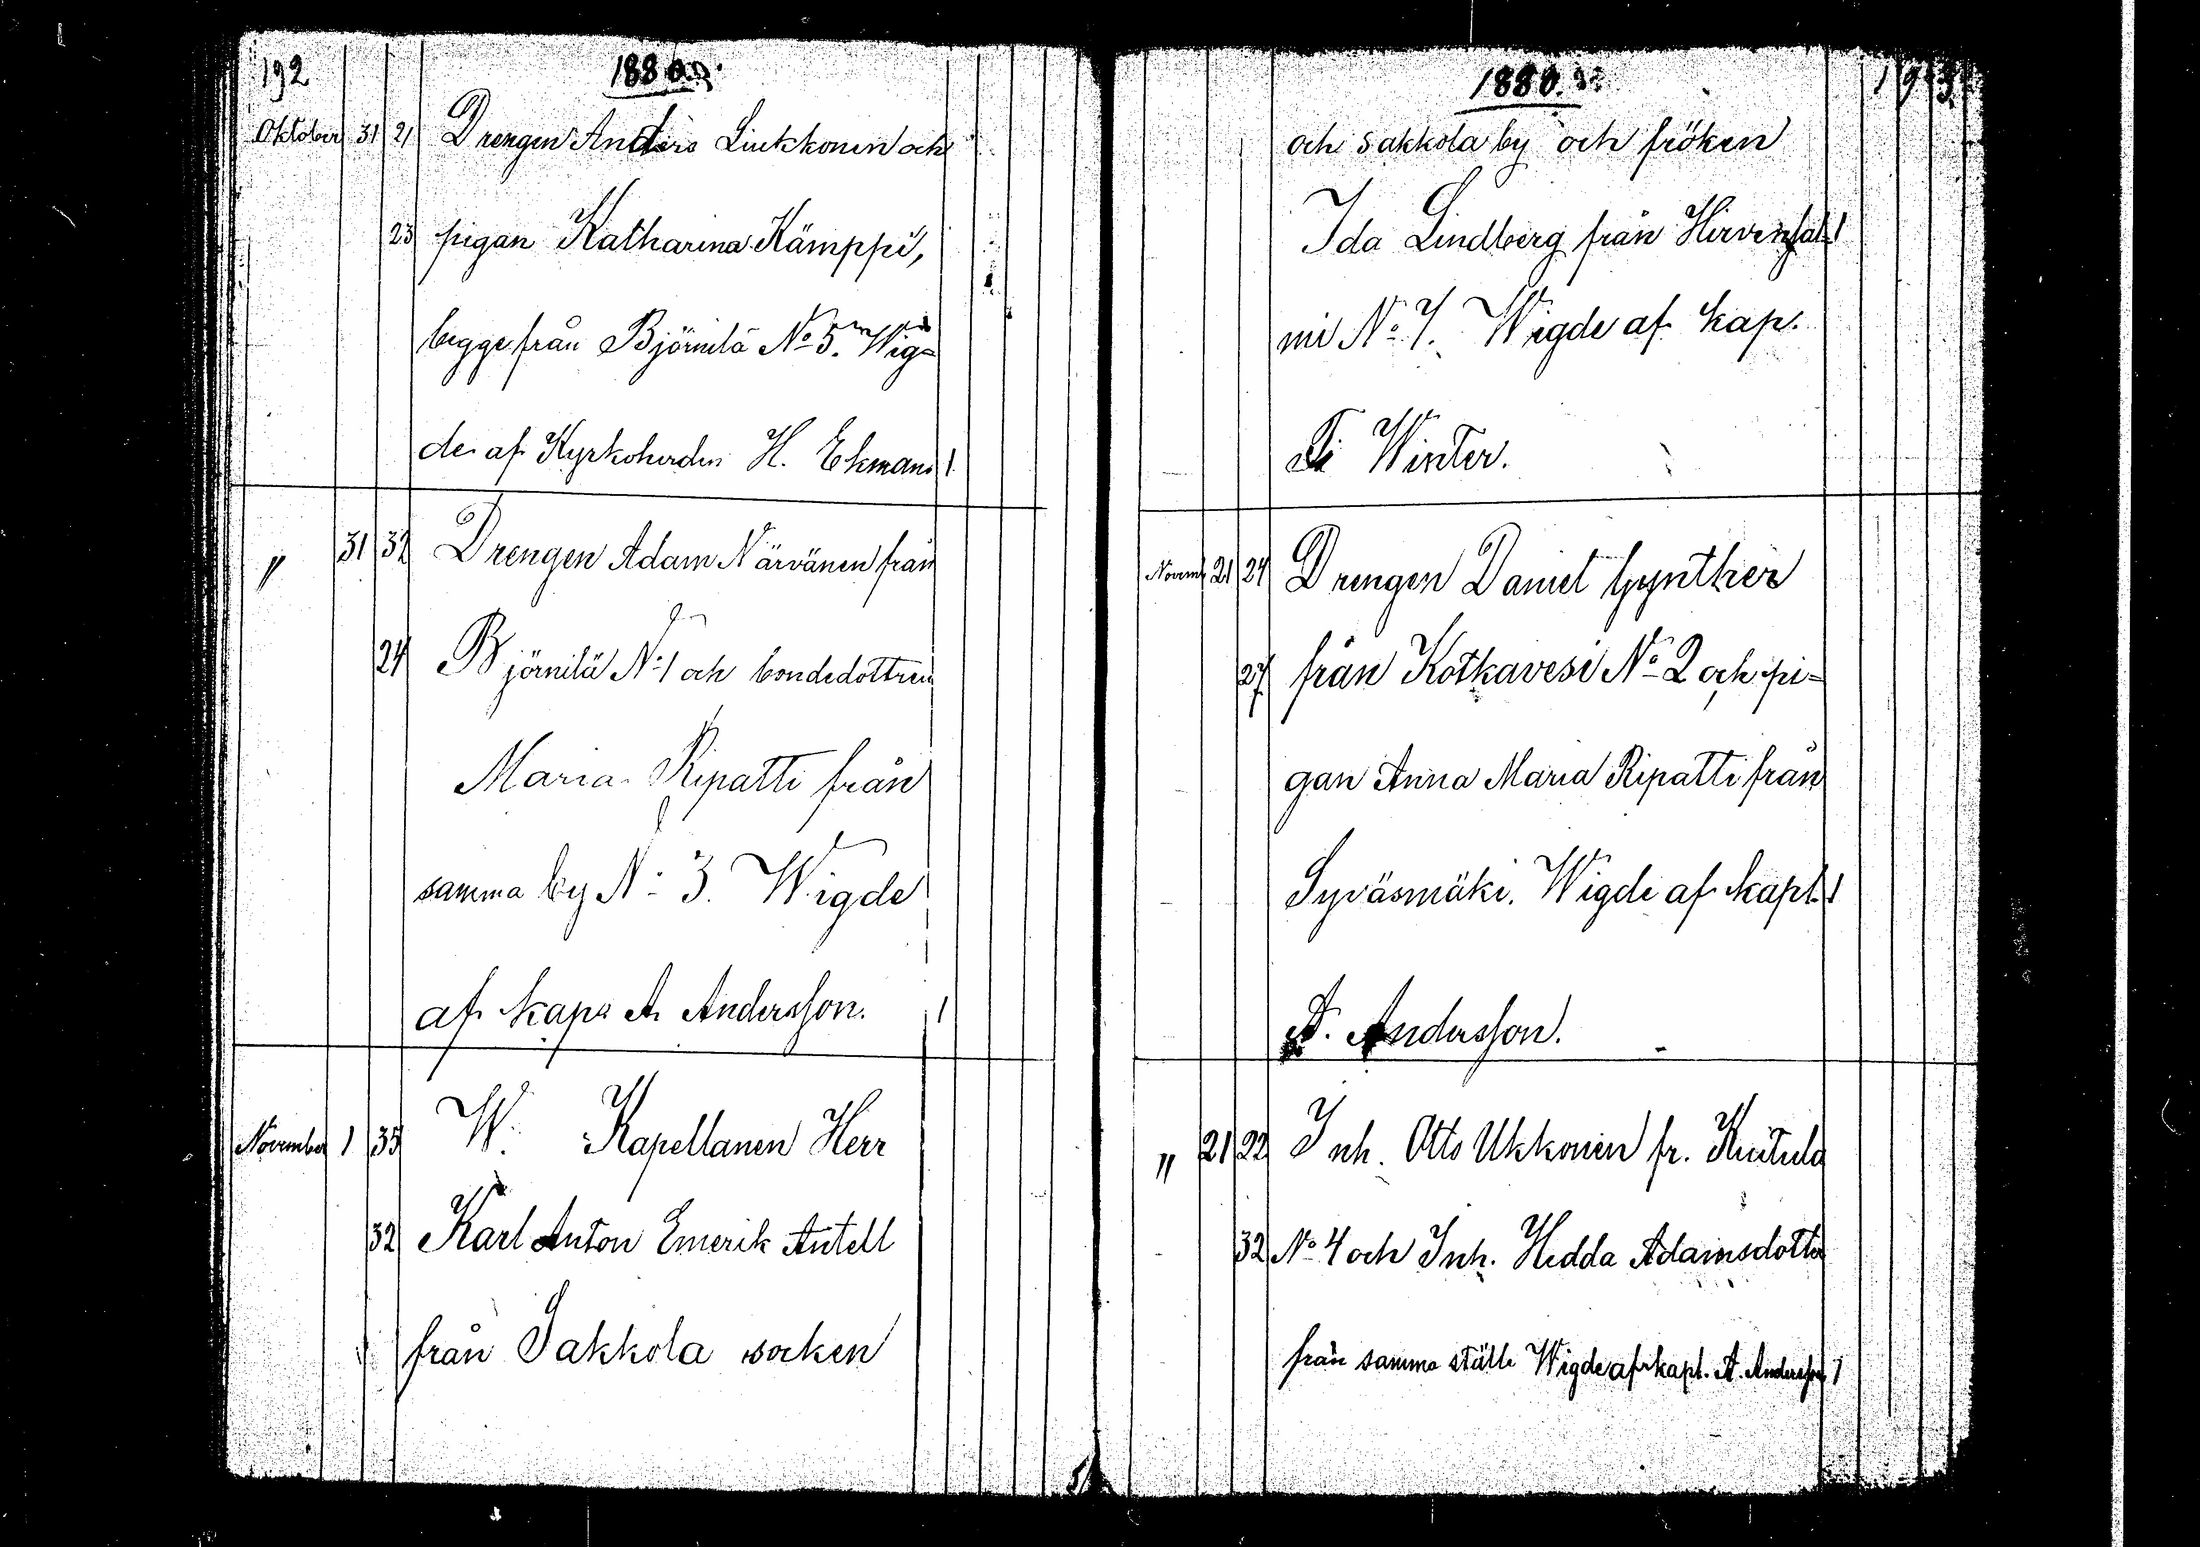 192
1880.
Oktober 31 21 Drengen Anders Liukkonen och
23 pigan Katharina Kämppi,
begge från Björnilä No 5. Wig=
de af Kyrkoherden H. Ekman. 1
" 31 32 Drengen Adam Närvänen från
24 Björnilä No 1 och bondedottren
Maria Ripatti från
samma by No 3. Wigde
af kap. A. Andersson. 1
November 1 35 W. Kapellanen Herr
32 Karl Anton Emerik Antell
från Sakkola socken
193
1880.
och Sakkola by och fröken
Ida Lindberg från Hirvensal= 1
mi No 7. Wigde af kap.
Winter.
Novemb 21 24 Drengen Daniel Gynther
27 från Kotkavesi No 2 och pi=
gan Anna Maria Ripatti från
Syväsmäki. Wigde af kapl. 1
A. Andersson.
" 21 22 Inh. Otto Ukkonen fr. Kuitula
32 No 4 och Inh. Hedda Adamsdotter
från samma ställe Wigde af kapl. A. Andersson 1